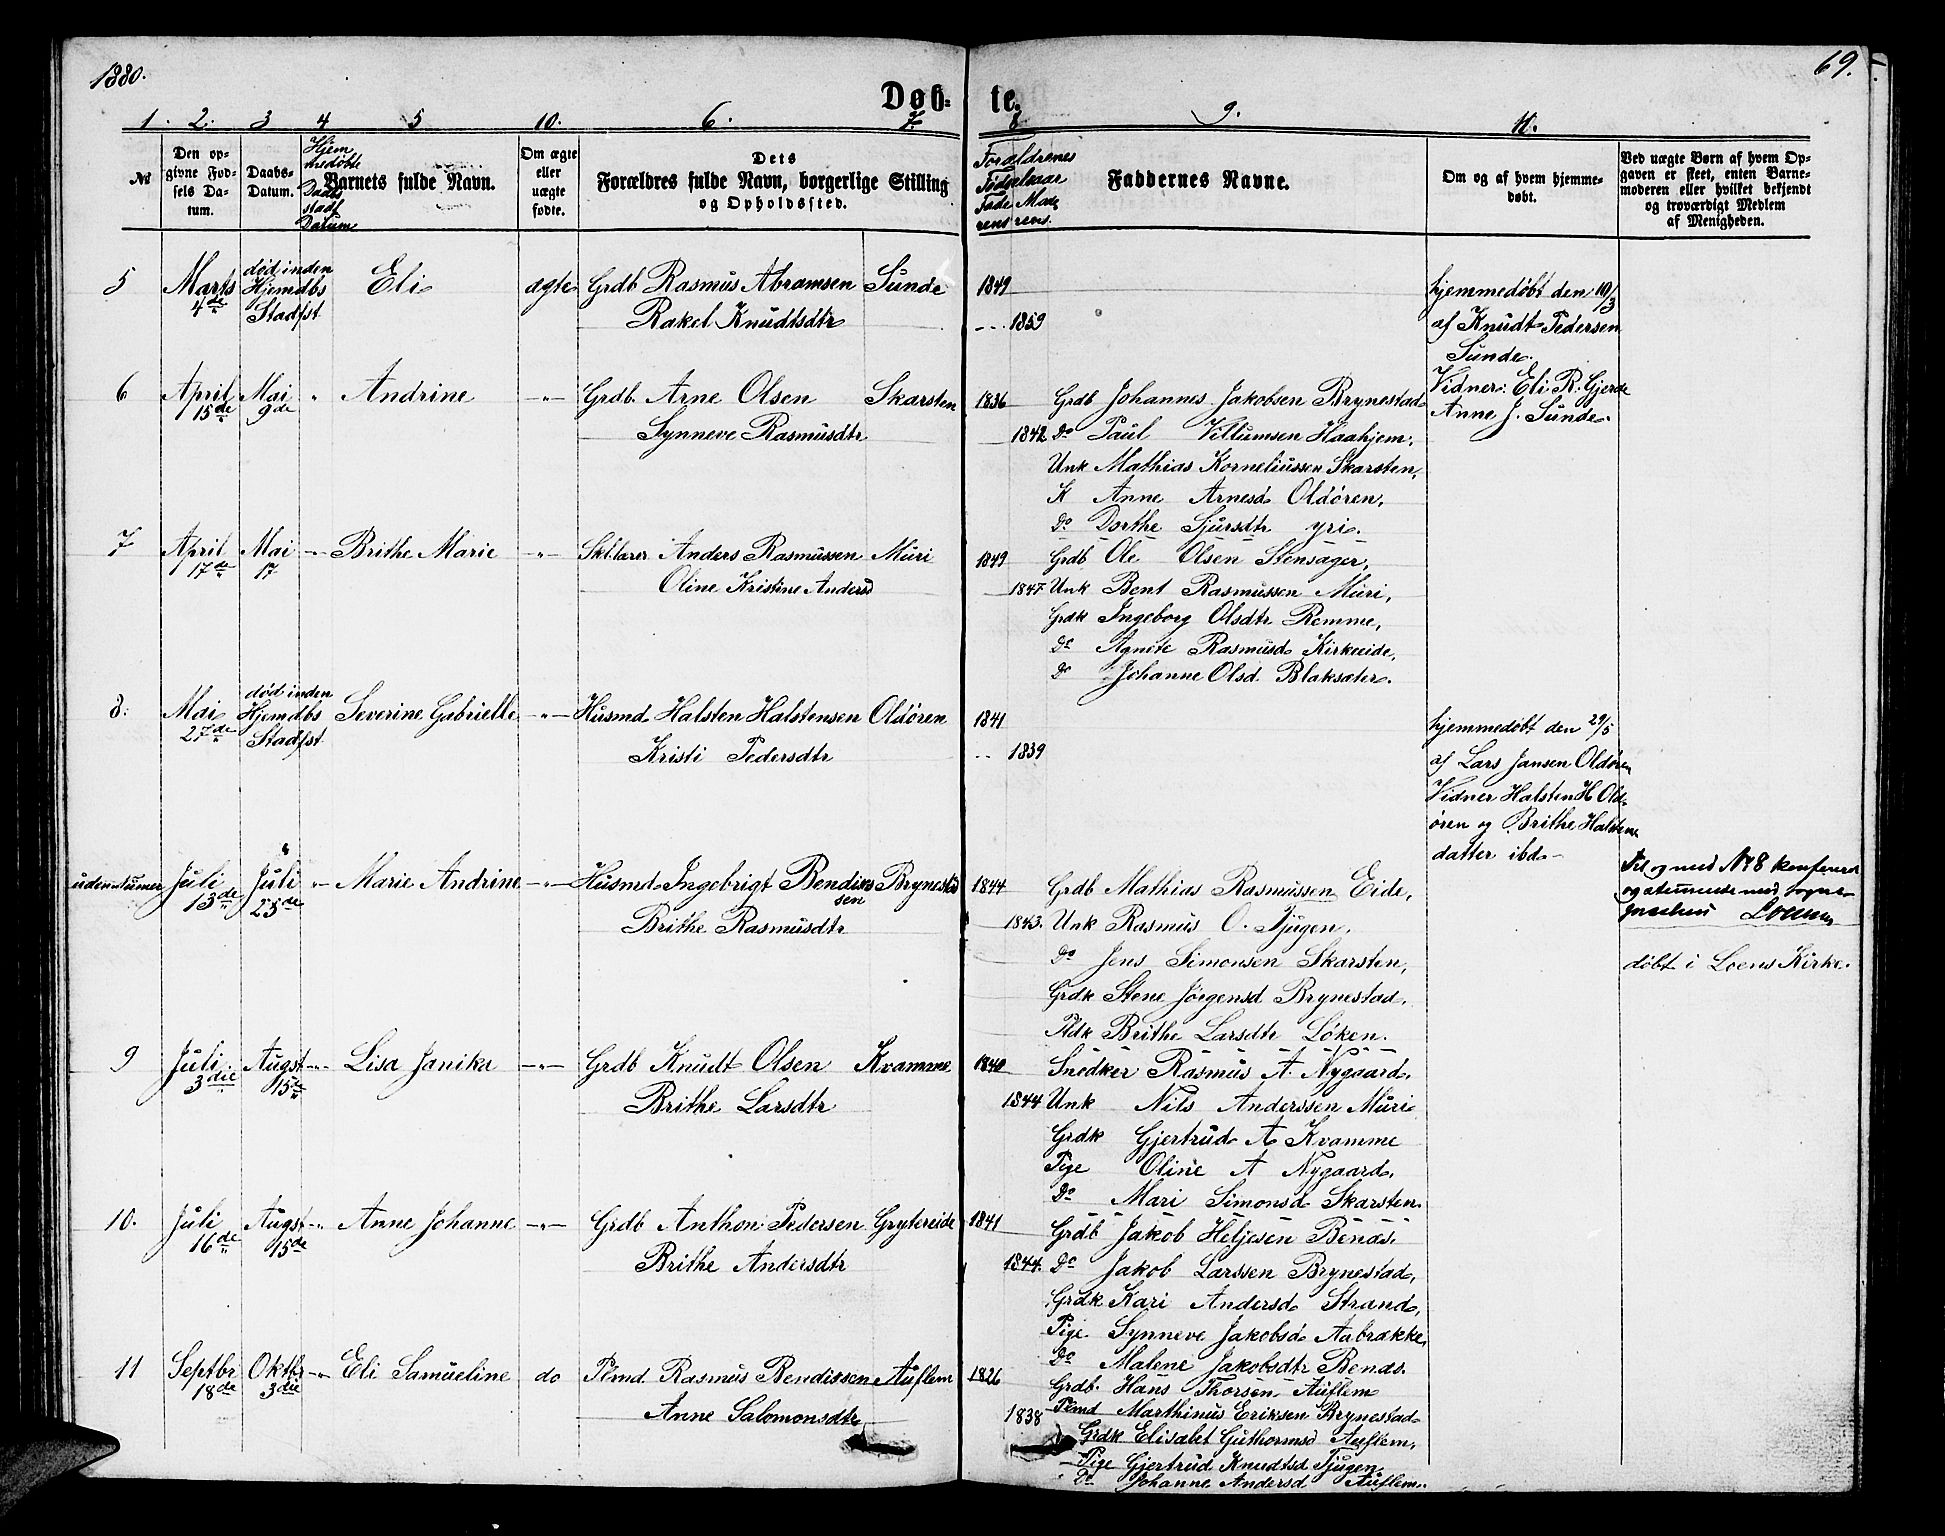 1880. 69.
Døb- te.
1. 2. 3 4 5 10. 6. 7. 8 9. 11.
№ Den opgivne Fødsels Datum. Daabs-Datum. Hjemmedøbte Daabs stadf Datum Barnets fulde Navn. Om ægte eller uægte fødte. Dets Forældres fulde Navn, borgerlige Stilling og Opholdssted. Forældrenes Fødselsaar Faderens Moderens. Faddernes Navne. Om og af hvem hjemmedøbt. Ved uægte Børn af hvem Opgaven er skeet, enten Barnemoderen eller hvilket bekjendt og troværdigt Medlem af Menigheden.
5 Marts 4de død inden Hjemdbs Stadfst Eli ægte Grdb Rasmus Abramsen Sunde 1849 hjemmedøbt den 10/3
Rakel Knudtsdtr - - - 1859 af Knudt Pedersen
Sunde.
6 April 15de Mai 9de " Andrine -"- Grdb. Arne Olsen Skarsten 1836 Grdb Johannes Jakobsen Brynestad Vidner: Eli R. Gjerde
Anne J. Sunde.
Synneve Rasmusdtr 1842 Do Paul Villumsen Haahjem,
Unk Mathias Korneliussen Skarsten,
K Anne Arnesd Oldören,
Do Dorthe Sjursdtr Yri.
7 April 17de Mai 17 -"- Brithe Marie -"- Skl.larer Anders Rasmussen Muri 1849 Grdb Ole Olsen Stensager,
Oline Kristine Andersd 1847 Unk Bent Rasmussen Muri,
Grdk Ingeborg Olsdtr Remme,
Do Agnete Rasmusd Kirkeeide,
Do Johanne Olsd. Blaksæter.
8: Mai 27de død inden Hjemdbs Stadfst Severine Gabrielle -"- Husmd Halsten Halstensen Oldören 1841 hjemmedøbt den 29/5
Kristi Pedersdtr - - 1839 af Lars Jansen Oldören
Vidner Halsten H Old-
ören og Brithe Halstens
datter ibd.
udennumer Juli 13de Juli 25de "- Marie Andrine -"- Husmd Ingebrigt Bendixsen Brynestd 1844 Grdb Mathias Rasmussen Eide, Til og med № 8
Loen
Brithe Rasmusdtr 1843. Unk Rasmus O. Tjugen,
Do Jens Simonsen Skarsten, døbt i Loens Kirke.
Grdk Stene Jörgensd Brynestad,
Pldk Brithe Larsdtr Löken.
9 Juli 3die Augst 15de -"- Lisa Janika -"- Grdb Knudt Olsen Kvamme 1840 Snedker Rasmus A. Nygaard,
Brithe Larsdtr 1844 Unk Nils Anderssen Muri
Grdk Gjertrud A Kvamme
Pige Oline A Nygaard,
Do Mari Simonsd Skarsten.
10. Juli 16de Augst 15de -"- Anne Johanne -"- Grdb Anthon Pedersen Grytereide 1841 Grdb Jakob Heljesen Benæs.
Brithe Andersdtr 1844. Do Jakob Larssen Brynestad,
Grdk Kari Andersd Strand,
Pige Synneve Jakobsd Aabrække,
Do Malene Jakobsdtr Benæs.
11 Septbr 18de Oktbr 3die -"- Eli Samueline do Plmd Rasmus Bendixsen Auflem 1826 Grdb. Hans Thorsen Auflem
Anne Salomonsdtr 1838 Plmd Marthinus Eriksen Brynestad
Grdk Elisabet Guthormsd Auflem,
Pige Gjertrud Knudtsd Tjugen
Do Johanne Andersd Auflem.